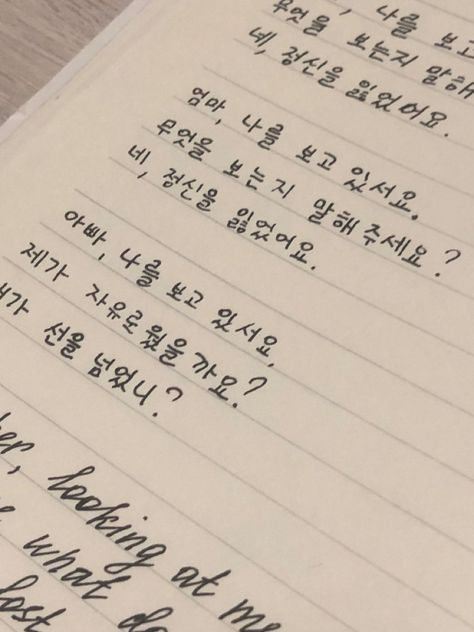 나를 보고
무엇을 보는지 말해
네, 정신을 잃었어요.
엄마, 나를 보고 있서요.
무엇을 보는지 말해주세요?
네, 정신을 잃었어요.
아빠, 나를 보고 있서요,
제가 자유로웠을 가요?
선을 넘었니?
looking at me
what do
lost